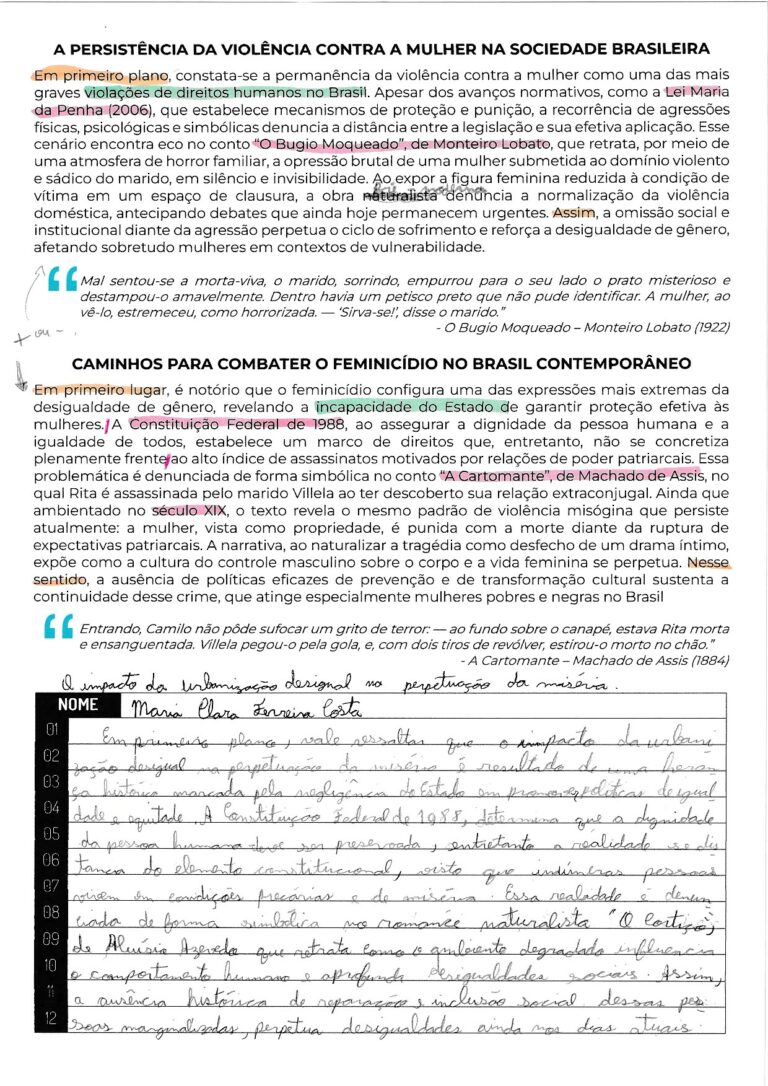 A PERSISTÊNCIA DA VIOLÊNCIA CONTRA A MULHER NA SOCIEDADE BRASILEIRA
Em primeiro plano, constata-se a permanência da violência contra a mulher como uma das mais
graves violações de direitos humanos no Brasil. Apesar dos avanços normativos, como a Lei Maria
da Penha (2006), que estabelece mecanismos de proteção e punição, a recorrência de agressões
físicas, psicológicas e simbólicas denuncia a distância entre a legislação e sua efetiva aplicação. Esse
cenário encontra eco no conto “O Bugio Moqueado”, de Monteiro Lobato, que retrata, por meio de
uma atmosfera de horror familiar, a opressão brutal de uma mulher submetida ao domínio violento
e sádico do marido, em silêncio e invisibilidade. Ao expor a figura feminina reduzida à condição de
vítima em um espaço de clausura, a obra naturalista denuncia a normalização da violência
doméstica, antecipando debates que ainda hoje permanecem urgentes. Assim, a omissão social e
institucional diante da agressão perpetua o ciclo de sofrimento e reforça a desigualdade de gênero,
afetando sobretudo mulheres em contextos de vulnerabilidade.
Mal sentou-se a morta-viva, o marido, sorrindo, empurrou para o seu lado o prato misterioso e
destampou-o amavelmente. Dentro havia um petisco preto que não pude identificar. A mulher, ao
vê-lo, estremeceu, como horrorizada. — ‘Sirva-se!’, disse o marido.”
- O Bugio Moqueado – Monteiro Lobato (1922)
+ ou -
CAMINHOS PARA COMBATER O FEMINICÍDIO NO BRASIL CONTEMPORÂNEO
Em primeiro lugar, é notório que o feminicídio configura uma das expressões mais extremas da
desigualdade de gênero, revelando a incapacidade do Estado de garantir proteção efetiva às
mulheres. A Constituição Federal de 1988, ao assegurar a dignidade da pessoa humana e a
igualdade de todos, estabelece um marco de direitos que, entretanto, não se concretiza
plenamente frente ao alto índice de assassinatos motivados por relações de poder patriarcais. Essa
problemática é denunciada de forma simbólica no conto “A Cartomante”, de Machado de Assis, no
qual Rita é assassinada pelo marido Villela ao ter descoberto sua relação extraconjugal. Ainda que
ambientado no século XIX, o texto revela o mesmo padrão de violência misógina que persiste
atualmente: a mulher, vista como propriedade, é punida com a morte diante da ruptura de
expectativas patriarcais. A narrativa, ao naturalizar a tragédia como desfecho de um drama íntimo,
expõe como a cultura do controle masculino sobre o corpo e a vida feminina se perpetua. Nesse
sentido, a ausência de políticas eficazes de prevenção e de transformação cultural sustenta a
continuidade desse crime, que atinge especialmente mulheres pobres e negras no Brasil
Entrando, Camilo não pôde sufocar um grito de terror: — ao fundo sobre o canapé, estava Rita morta
e ensanguentada. Villela pegou-o pela gola, e, com dois tiros de revólver, estirou-o morto no chão.”
- A Cartomante – Machado de Assis (1884)
O impacto da urbanização desigual na perpetuação da miséria.
NOME Maria Clara Ferreira Costa
01 Em primeiro plano, vale ressaltar que o impacto da urbani
02 zação desigual na perpetuação da miséria é resultado de uma heran
03 ça histórica marcada pela negligência do Estado em promover políticas de igual
04 dade e equidade. A Constituição Federal de 1988, determina que a dignidade
05 da pessoa humana deve ser preservada, entretanto a realidade se dis
06 tancia do elemento constitucional, visto que indúmeras pessoas
07 vivem em condições precárias e de miséria. Essa realadade é denun
08 ciada de forma simbólica no romance naturalista "O Cortiço",
09 de Aluísio Azevedo que retrata como o ambiente degradado influencia
10 o comportamento humano e aprofunda desigualdades sociais. Assim,
11 a ausência histórica de reparação e inclusão social dessas pes
12 soas marginalizadas, perpetua desigualdades ainda nos dias atuais.